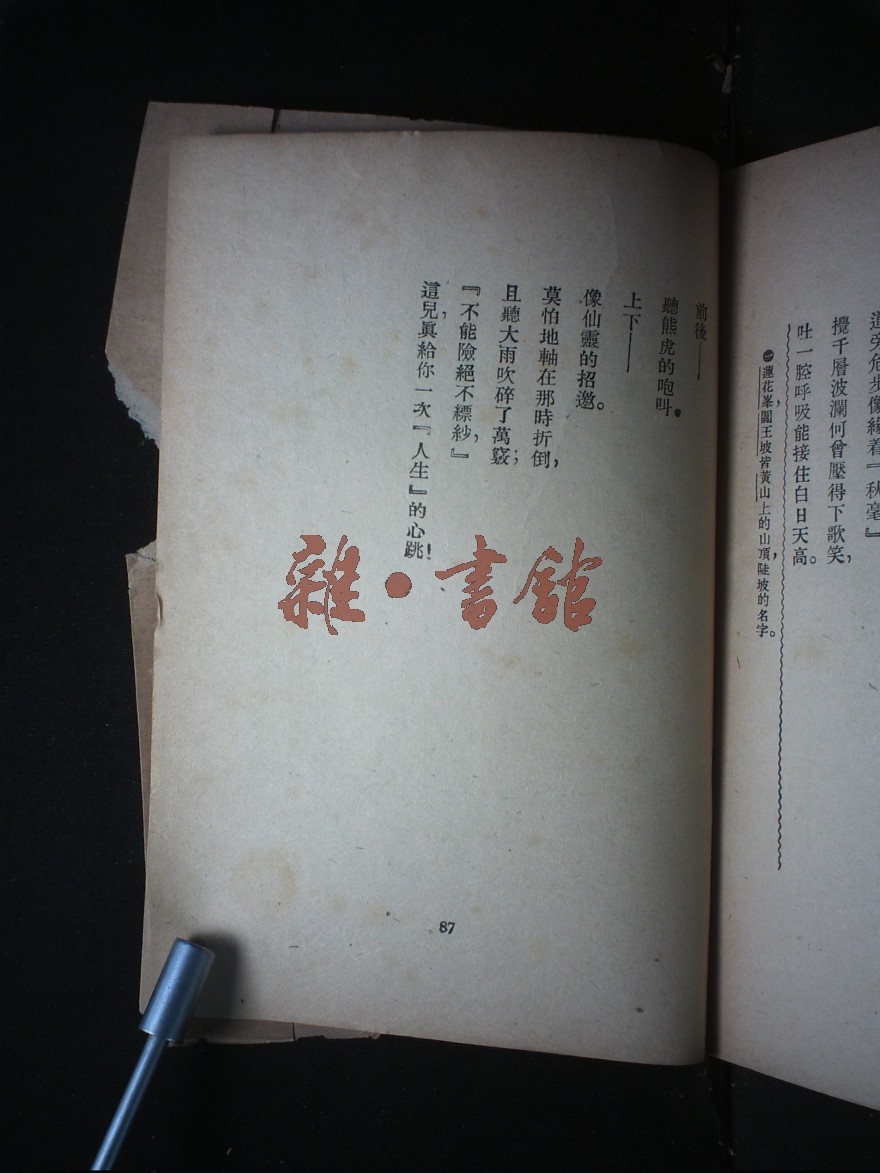 道旁危步像緣着『秋毫』
攪千層波瀾何曾壓得下歌笑，
吐一腔呼吸能接住白日天高。
㊀蓮花峯，閻王坡皆黃山上的山頂，陡坡的名字。
前後——
聽熊虎的咆叫。
上下——
像仙靈的招邀。
莫怕地軸在那時折倒，
且聽大雨吹碎了萬竅；
『不能險絕不縹紗，』
這兒，眞給你一次『人生』的心跳！
雜·書館
87